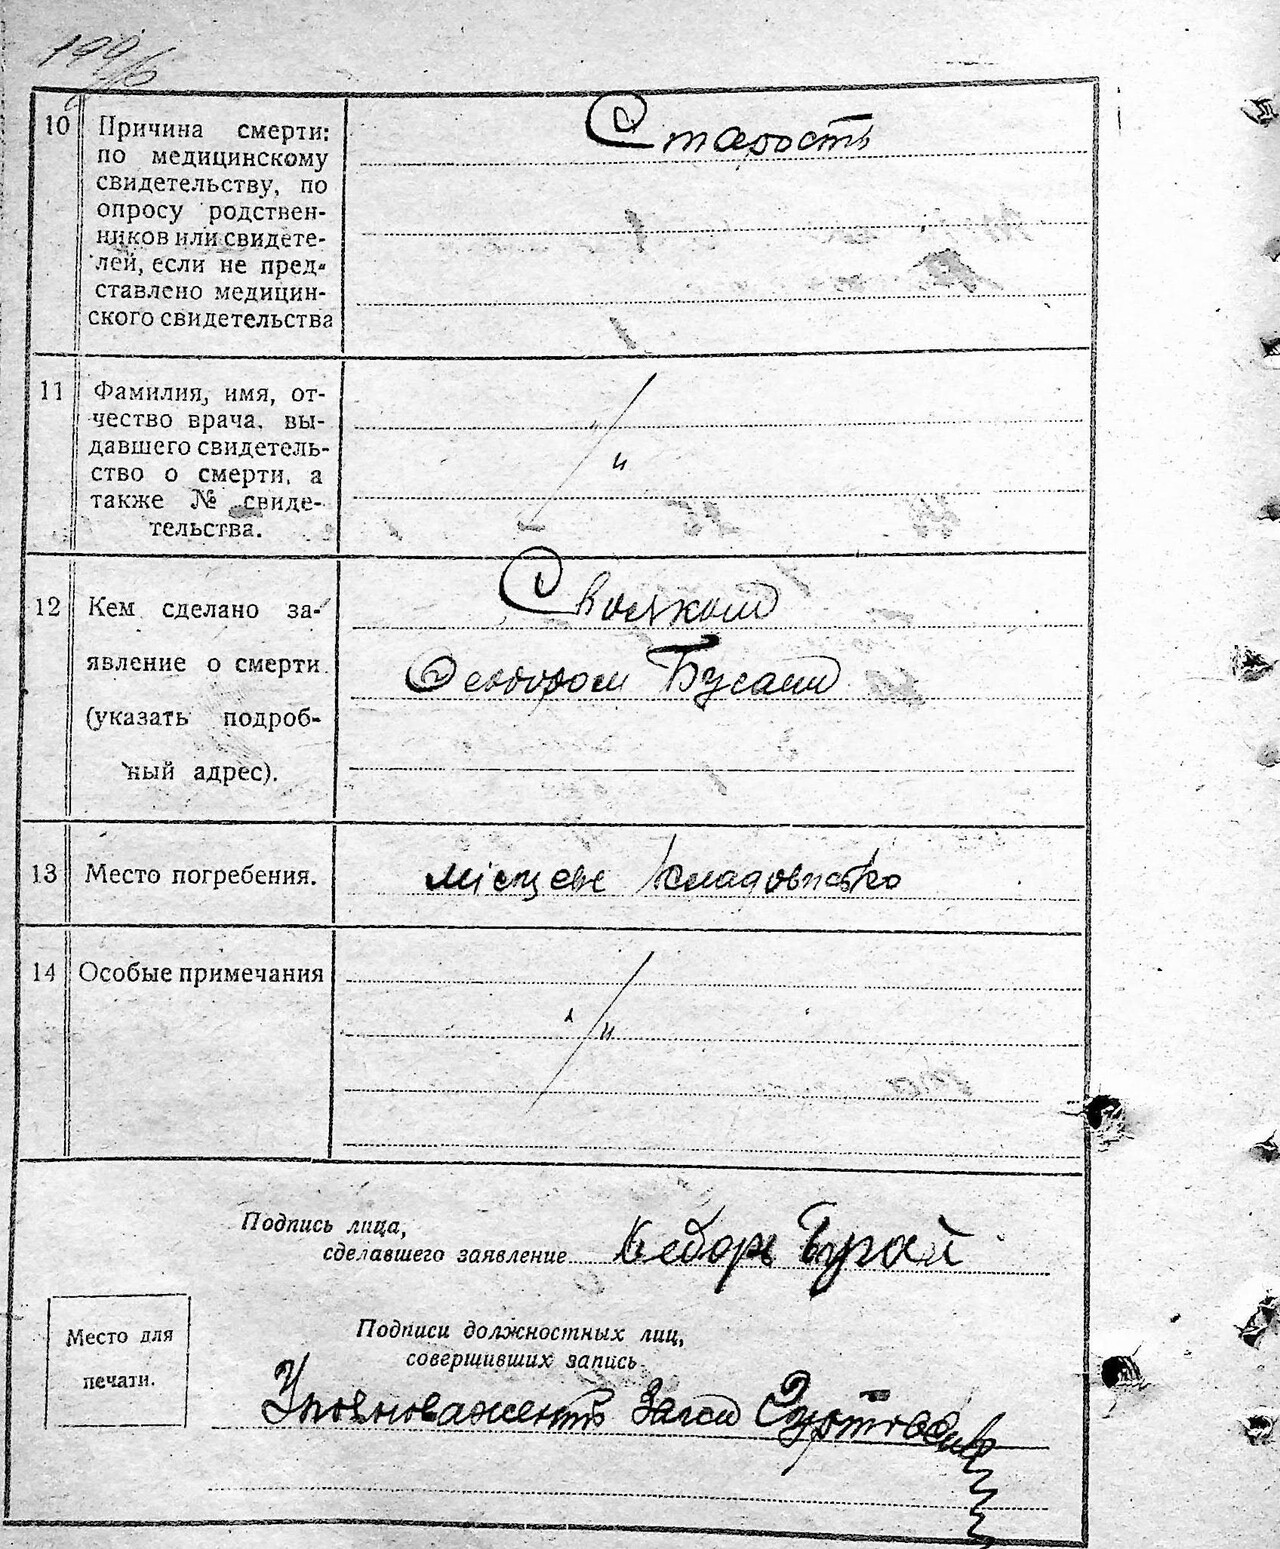 10 Причина смерти:
по медицинскому
свидетельству, по
опросу родствен-
ников или свидете-
лей, если не пред-
ставлено медицин-
ского свидетельства
Старость
11 Фамилия, имя, от-
чество врача, вы-
давшего свидетель-
ство о смерти, а
также № свиде-
тельства.
12 Кем сделано за-
явление о смерти
(указать подроб-
ный адрес).
Своякom
13 Место погребения.
місцеве кладовисько
14 Особые примечания
Подпись лица,
сделавшего заявление
Подписи должностных лиц,
совершивших запись
Место для
печати.